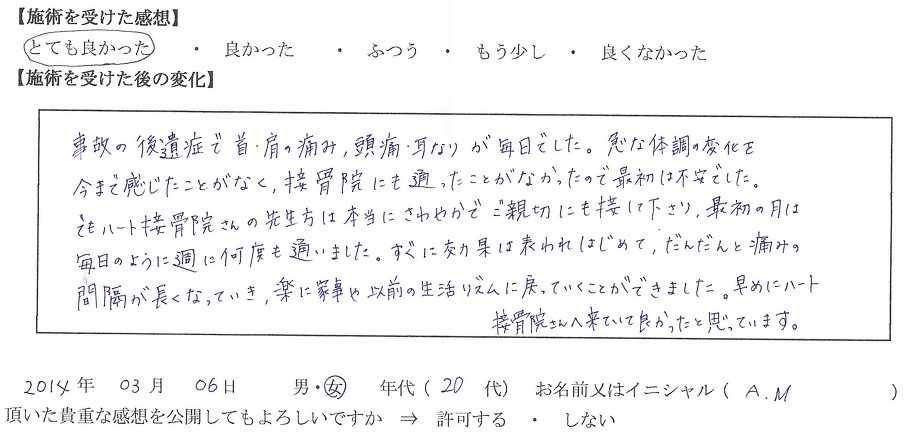 【施術を受けた感想】
とても良かった ・ 良かった ・ ふつう ・ もう少し ・ 良くなかった
【施術を受けた後の変化】
事故の後遺症で首・肩の痛み,頭痛・耳なりが毎日でした。急な体調の変化を
今まで感じたことがなく,接骨院にも通ったことがなかったので最初は不安でした。
でもハート接骨院さんの先生方は本当にさわやかでご親切にも接して下さり,最初の月は
毎日のように週に何度も通いました。すぐに効果は表われはじめて,だんだんと痛みの
間隔が長くなっていき,楽に家事や以前の生活リズムに戻っていくことができました。早めにハート
接骨院さんへ来ていて良かったと思っています。
2014年 03月 06日 男・女 年代( 20 代) お名前又はイニシャル( A.M )
頂いた貴重な感想を公開してもよろしいですか ⇒ 許可する ・ しない